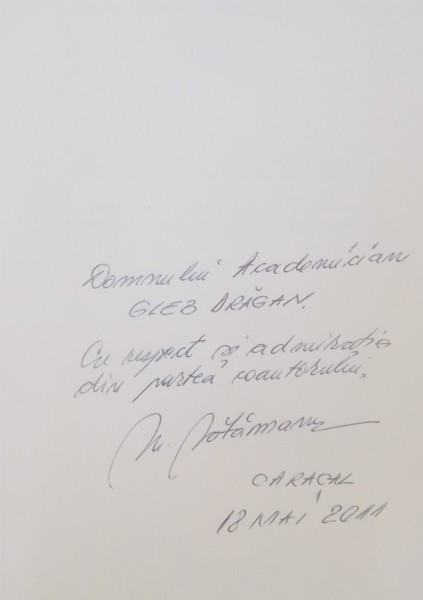 Domnului Academician
GLEB DRĂGAN.
Cu respect și admirație
din partea coautorului,
CARACAL
18 MAI 2011